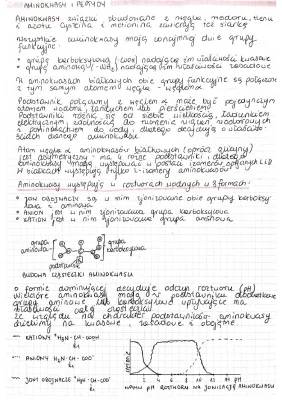 AMINOKWASY I PEPTYDY
AMINOKWASY związki zbudowane z węgla, wodoru, tlenu
i azotu cysteina i metionina zawierają też siarkę
Wszystkie aminokwasy mają co najmniej dwie grupy
funkcyjne
• grupę karboksylową (-COOH) nadającą im właściwości kwasowe
• grupę aminową (-NH₂) nadającą im właściwości zasadowe
W aminokwasach białkowych obie grupy funkcyjne są połączone
z tym samym atomem węgla - węglem α
Podstawnik połączony z węglem α może być pojedynczym
atomem wodoru, łańcuchem lub pierścieniem
Podstawniki różnią się od siebie wielkością, ładunkiem
elektrycznym, zdolnością do tworzenia wiązań wodorowych
i powinowactwem do wody, dlatego decydują o właściwo-
ściach danego aminokwasu
Atom węgla α aminokwasów białkowych (oprócz glicyny)
jest asymetryczny - ma 4 różne podstawniki, dlatego
aminokwasy mogą występować w postaci izomerów optycznych L i D
W białkach występują tylko L-izomery aminokwasów
Aminokwasy występują w roztworach wodnych w 3 formach:
• JON OBOJNACZY są w nim zjonizowane obie grupy karboksy-
lowa i aminowa
• ANION jest w nim zjonizowana grupa karboksylowa
• KATION jest w nim zjonizowana grupa aminowa
grupa aminowa
grupa karboksylowa
podstawnik
BUDOWA CZĄSTECZKI AMINOKWASU
O formie dominującej decyduje odczyn roztworu (pH)
Niektóre aminokwasy mają w podstawniku dodatkowe
grupy aminowe lub karboksylowe wpływające na
właściwości całej cząsteczki
Ze względu na charakter podstawników aminokwasy
dzielimy na kwasowe, zasadowe i obojętne
KATIONY ⁺H₃N-CH-COOH
R₁
ANIONY H₂N-CH-COO⁻
R₁
JONY OBOJNACZE ⁺H₃N-CH-COO⁻
R₁
2 4 6 8 10 12 14 pH
WPŁYW PH ROZTWORU NA JONIZACJĘ AMINOKWASU